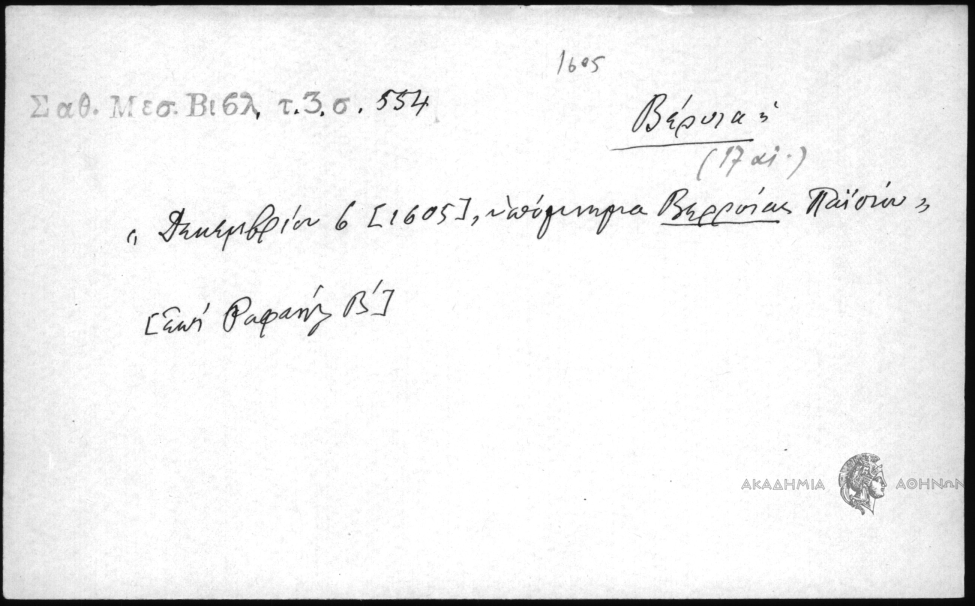 1605
Σαθ. Μεσ. Βιβλ. τ. 3. σ. 554
Βέρροια ἡ
(17 αἰ.)
« Δεκεμβρίου 6 [1605], ὑπόμνημα Βερροίας Παϊσίου »
[ἐπί Ραφαήλ Β']
ΑΚΑΔΗΜΙΑ ΑΘΗΝΩΝ